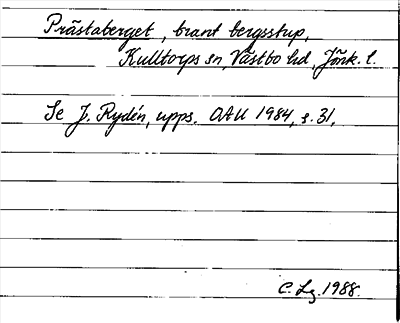 Prästaberget, brant bergsstup,
Kulltorps sn, Västbo hd, Jönk. l.
Se J. Rydén, upps. OAU 1984, s. 31,
C. Lg. 1988.